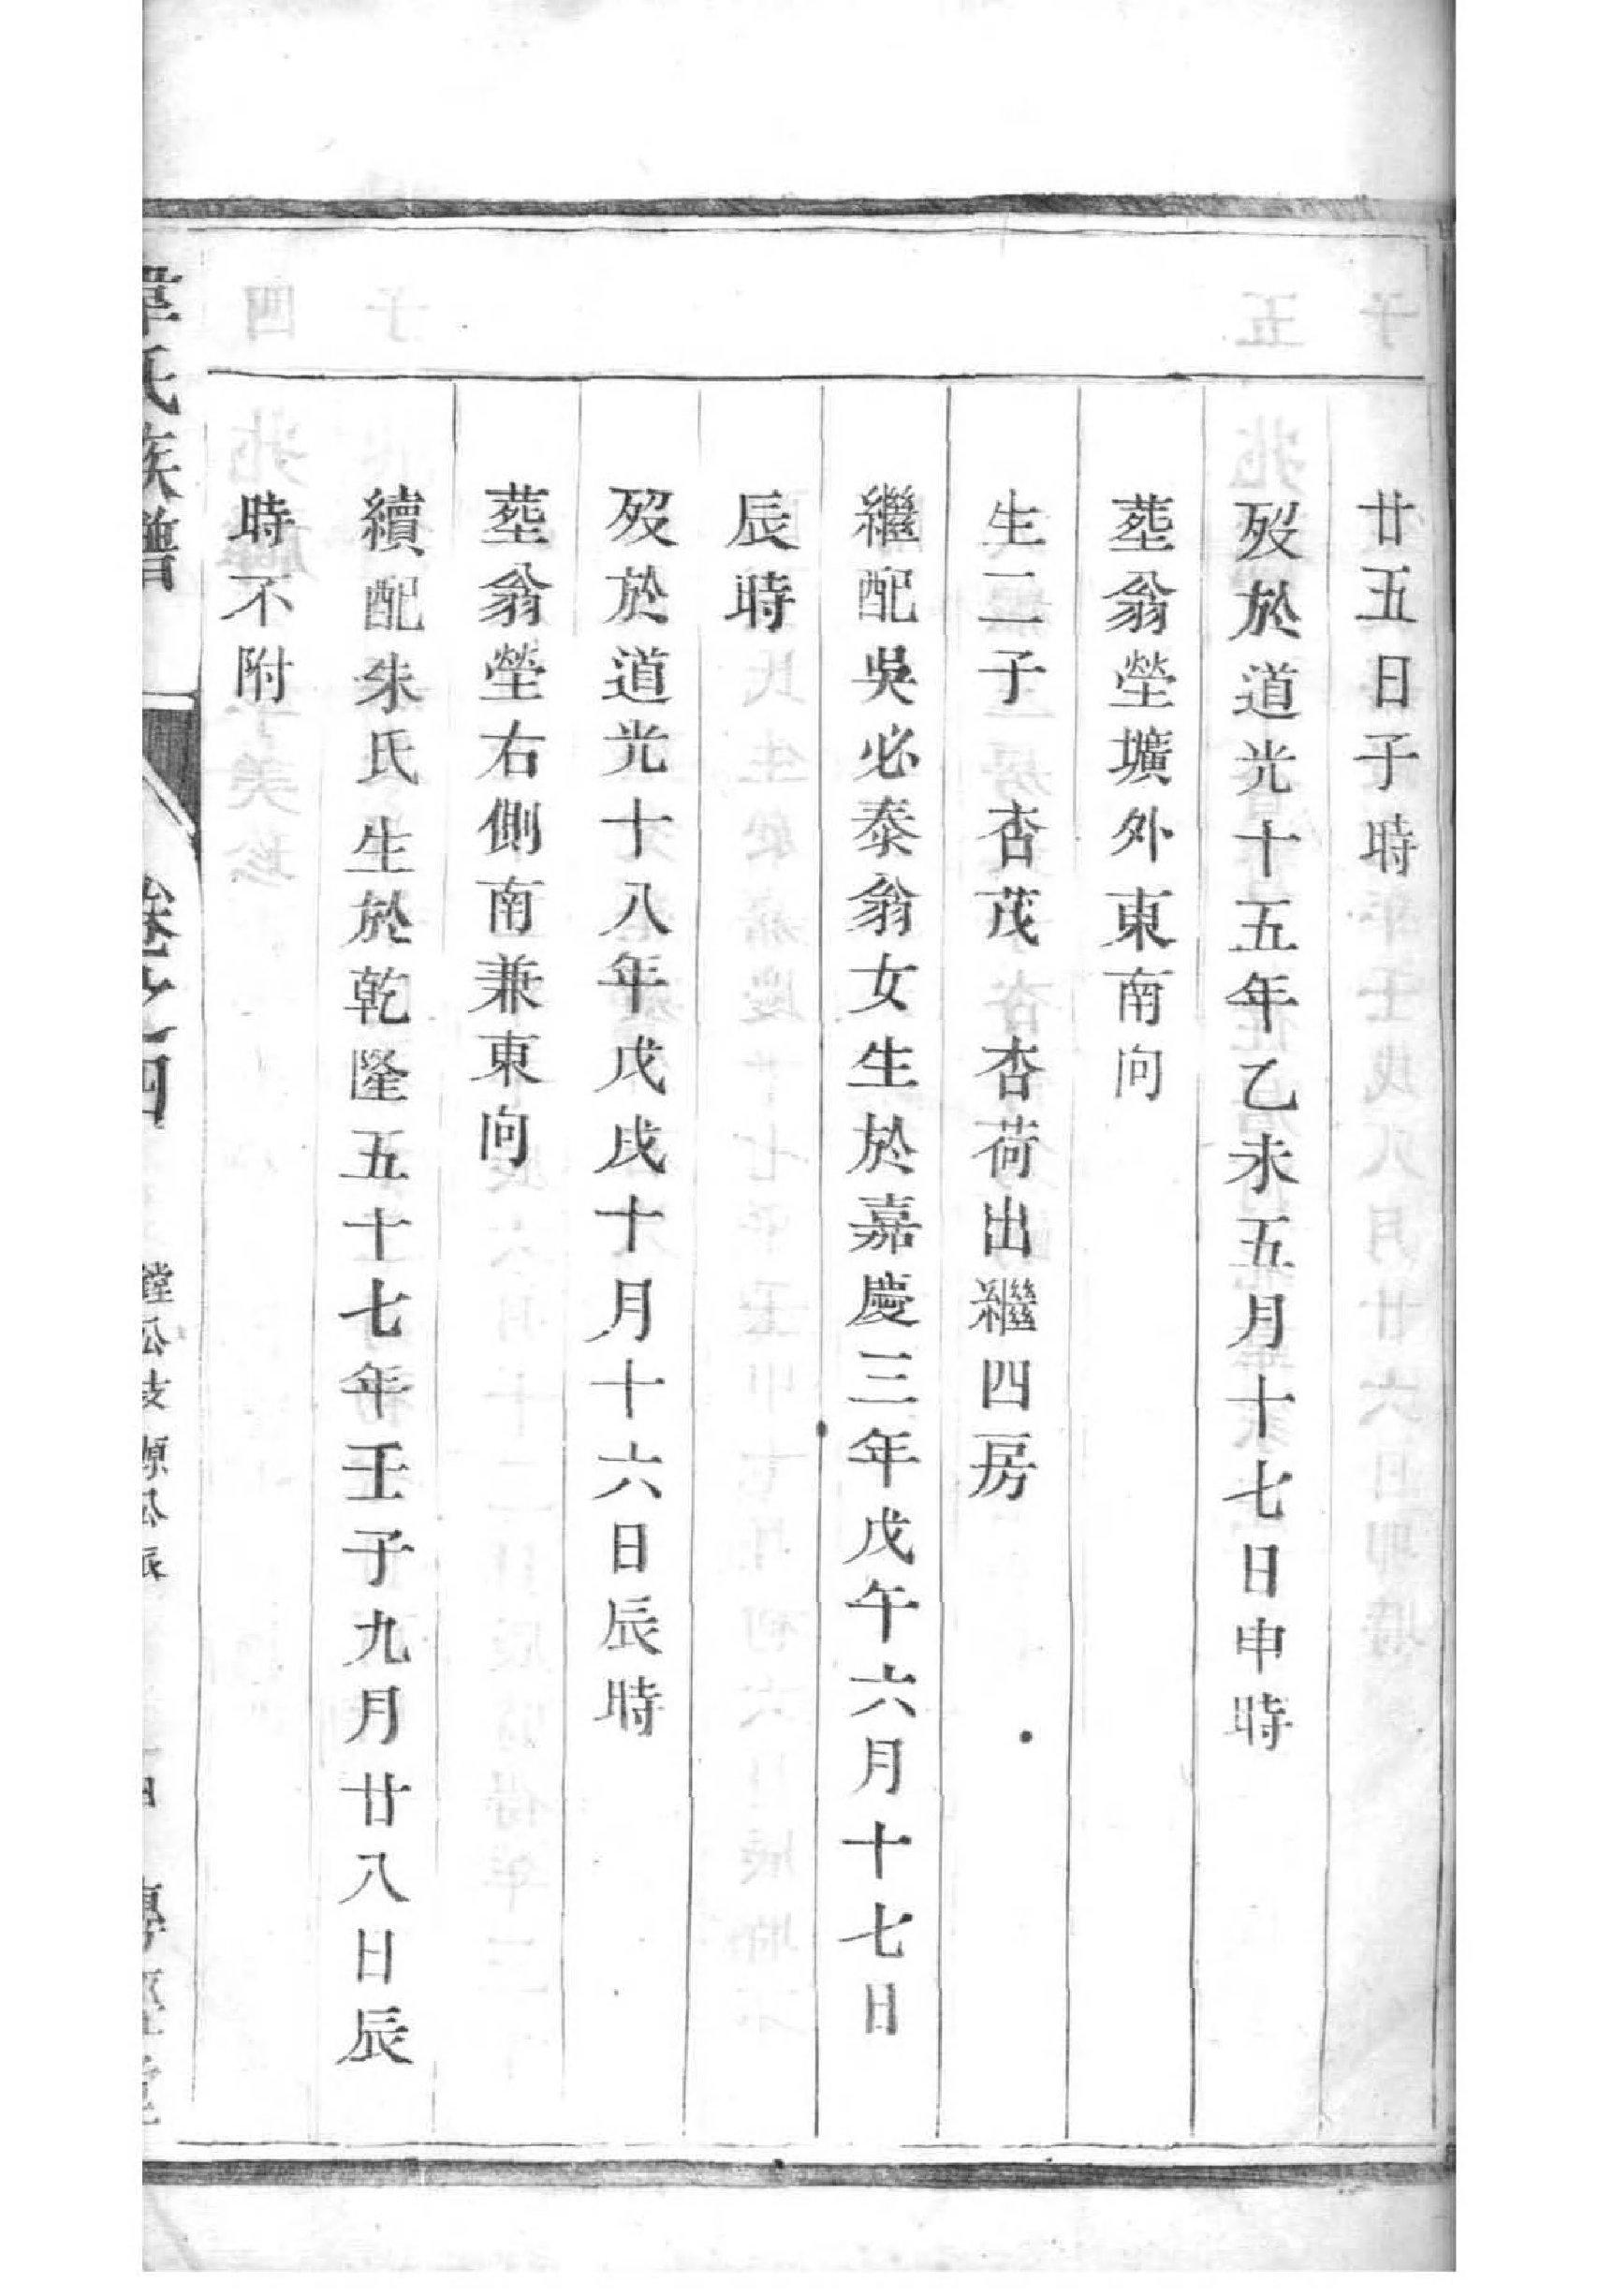 廿五日子時
歿於道光十五年乙未五月十七日申時
葬翁塋壙外東南向
生二子　杏茂　杏荷出繼四房
繼配吳必泰翁女生於嘉慶三年戊午六月十七日
辰時
歿於道光十八年戊戌十月十六日辰時
葬翁塋右側南兼東向
續配朱氏生於乾隆五十七年壬子九月廿八日辰
時不附
氏族譜
卷之四